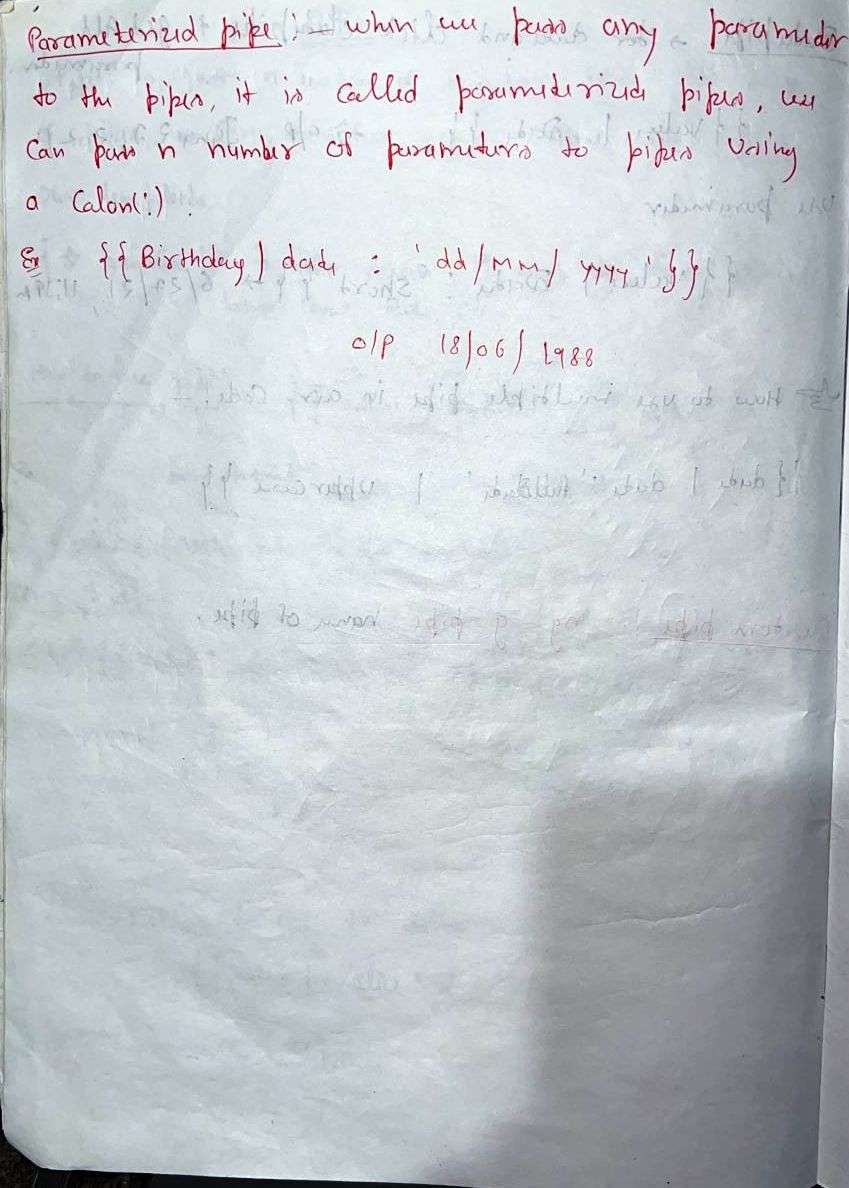 Parameterized pipe :- when we pass any parameter
to the pipes, it is called parameterized pipes, we
can pass n number of parameters to pipes using
a Calon(:).
Ex {{ Birthday | date : 'dd/MM/yyyy' }}
o/p 18/06/1988